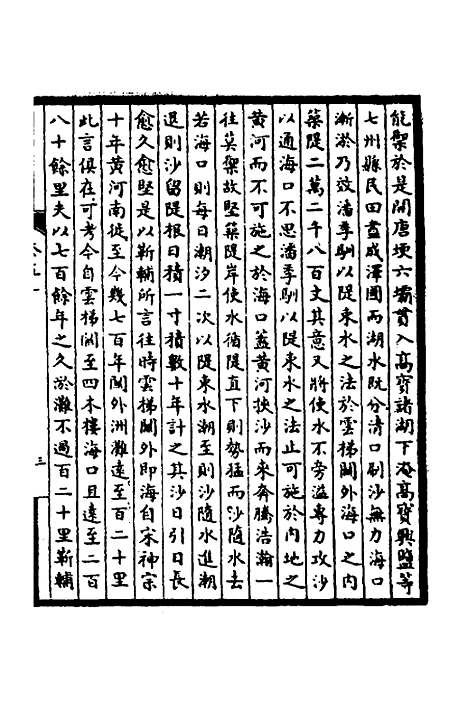 能禦於是開唐埂六壩貫入高寶諸湖下淹高寶興鹽等
七州縣民田盡成澤國而湖水旣分清口刷沙無力海口
漸淤乃效潘季馴以隄束水之法於雲梯關外海口之內
築隄二萬二千八百丈其意又將使水不旁溢專力攻沙
以通海口不思潘季馴以隄束水之法止可施於內地之
黄河而不可施之於海口葢黄河挾沙而來奔騰浩瀚一
往莫禦故堅築隄岸使水循隄直下則勢猛而沙隨水去
若海口則每日潮汐二次以隄束水潮至則沙隨水進潮
退則沙留隄根日積一寸積數十年計之其沙日引日長
愈久愈堅是以靳輔所言往時雲梯關外即海自宋神宗
十年黄河南徙至今幾七百年關外洲灘遠至百二十里
此言俱在可考今自雲梯關至四木樓海口且遠至二百
八十餘里夫以七百餘年之久淤灘不過百二十里靳輔
三